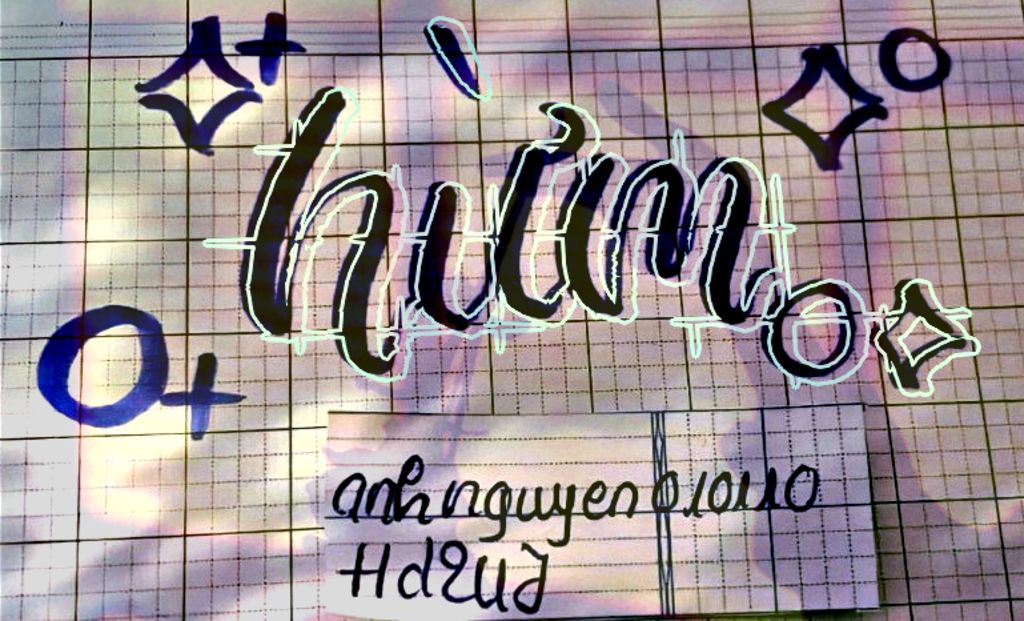 hừm
anhnguyen010110
Hd2UJ